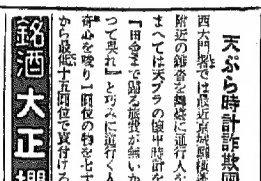 天ぷら時計詐欺團
西大門署では最近京城驛
附近の雜沓を舞臺に通行人を
まへては天プラの懷中時計を
『田舍まで歸る旅費が無いか
つて呉れ』と巧みに通行人
奇心を唆り一圓位の物を七
から最低十五圓位で賣付ける
銘酒 大正櫻